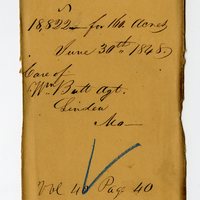 18,822 - for 160 Acres
June 30th 1848
Care of
Wm Butt Agt.
Linden
Mo
Vol 40 Page 40